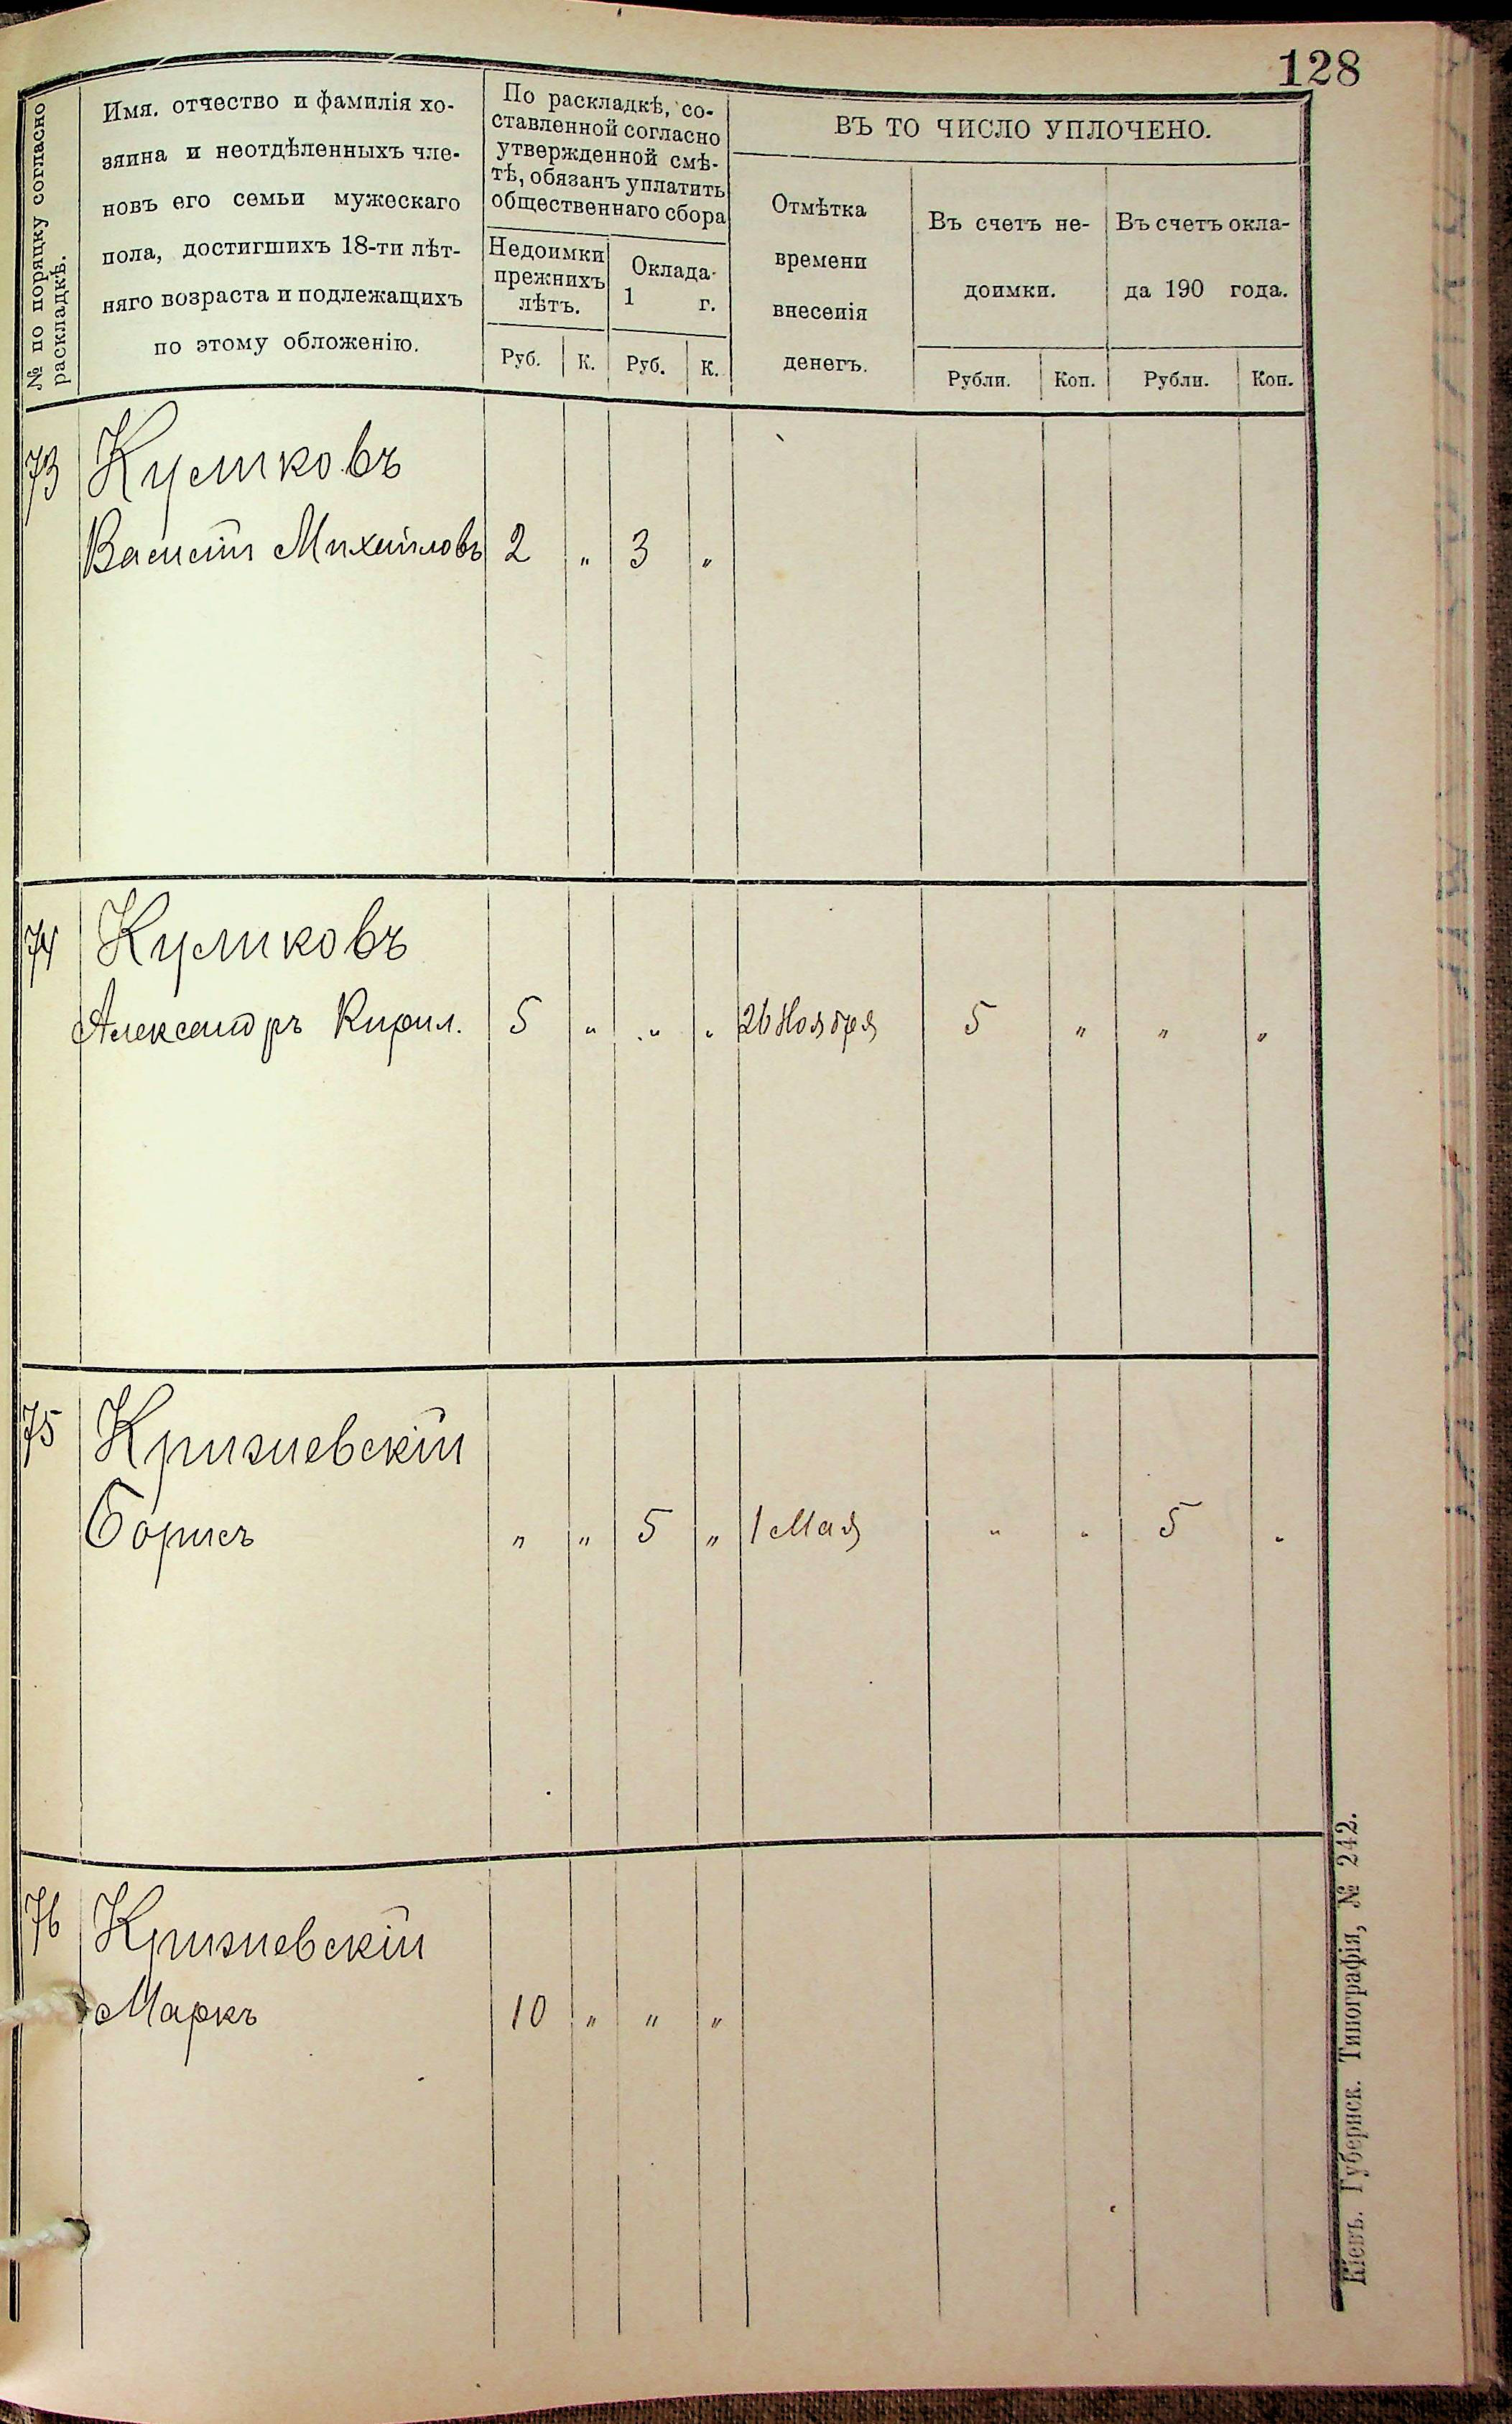 128
№ по порядку согласно
раскладкѣ.
Имя, отчество и фамилія хо-
зяина и неотдѣленныхъ чле-
новъ его семьи мужескаго
пола, достигшихъ 18-ти лѣт-
няго возраста и подлежащихъ
по этому обложенію.
По раскладкѣ, со-
ставленной согласно
утвержденной смѣ-
тѣ, обязанъ уплатить
общественнаго сбора
Недоимки
прежнихъ
лѣтъ.
Оклада
1 г.
Руб. К. Руб. К.
ВЪ ТО ЧИСЛО УПЛОЧЕНО.
Отмѣтка
времени
внесенія
денегъ.
Въ счетъ не-
доимки.
Въ счетъ окла-
да 190 года.
Рубли. Коп. Рубли. Коп.
73 Куликовъ
Василій Михайловъ 2 „ 3 „
74 Куликовъ
Александръ Кирил. 5 „ „ „ 26 Ноября 5 „ „ „
75 Кризневскій
Борисъ „ „ 5 „ 1 Мая „ „ 5 „
76 Кризневскій
Маркъ 10 „ „ „
Кіевъ. Губернск. Типографія, № 242.